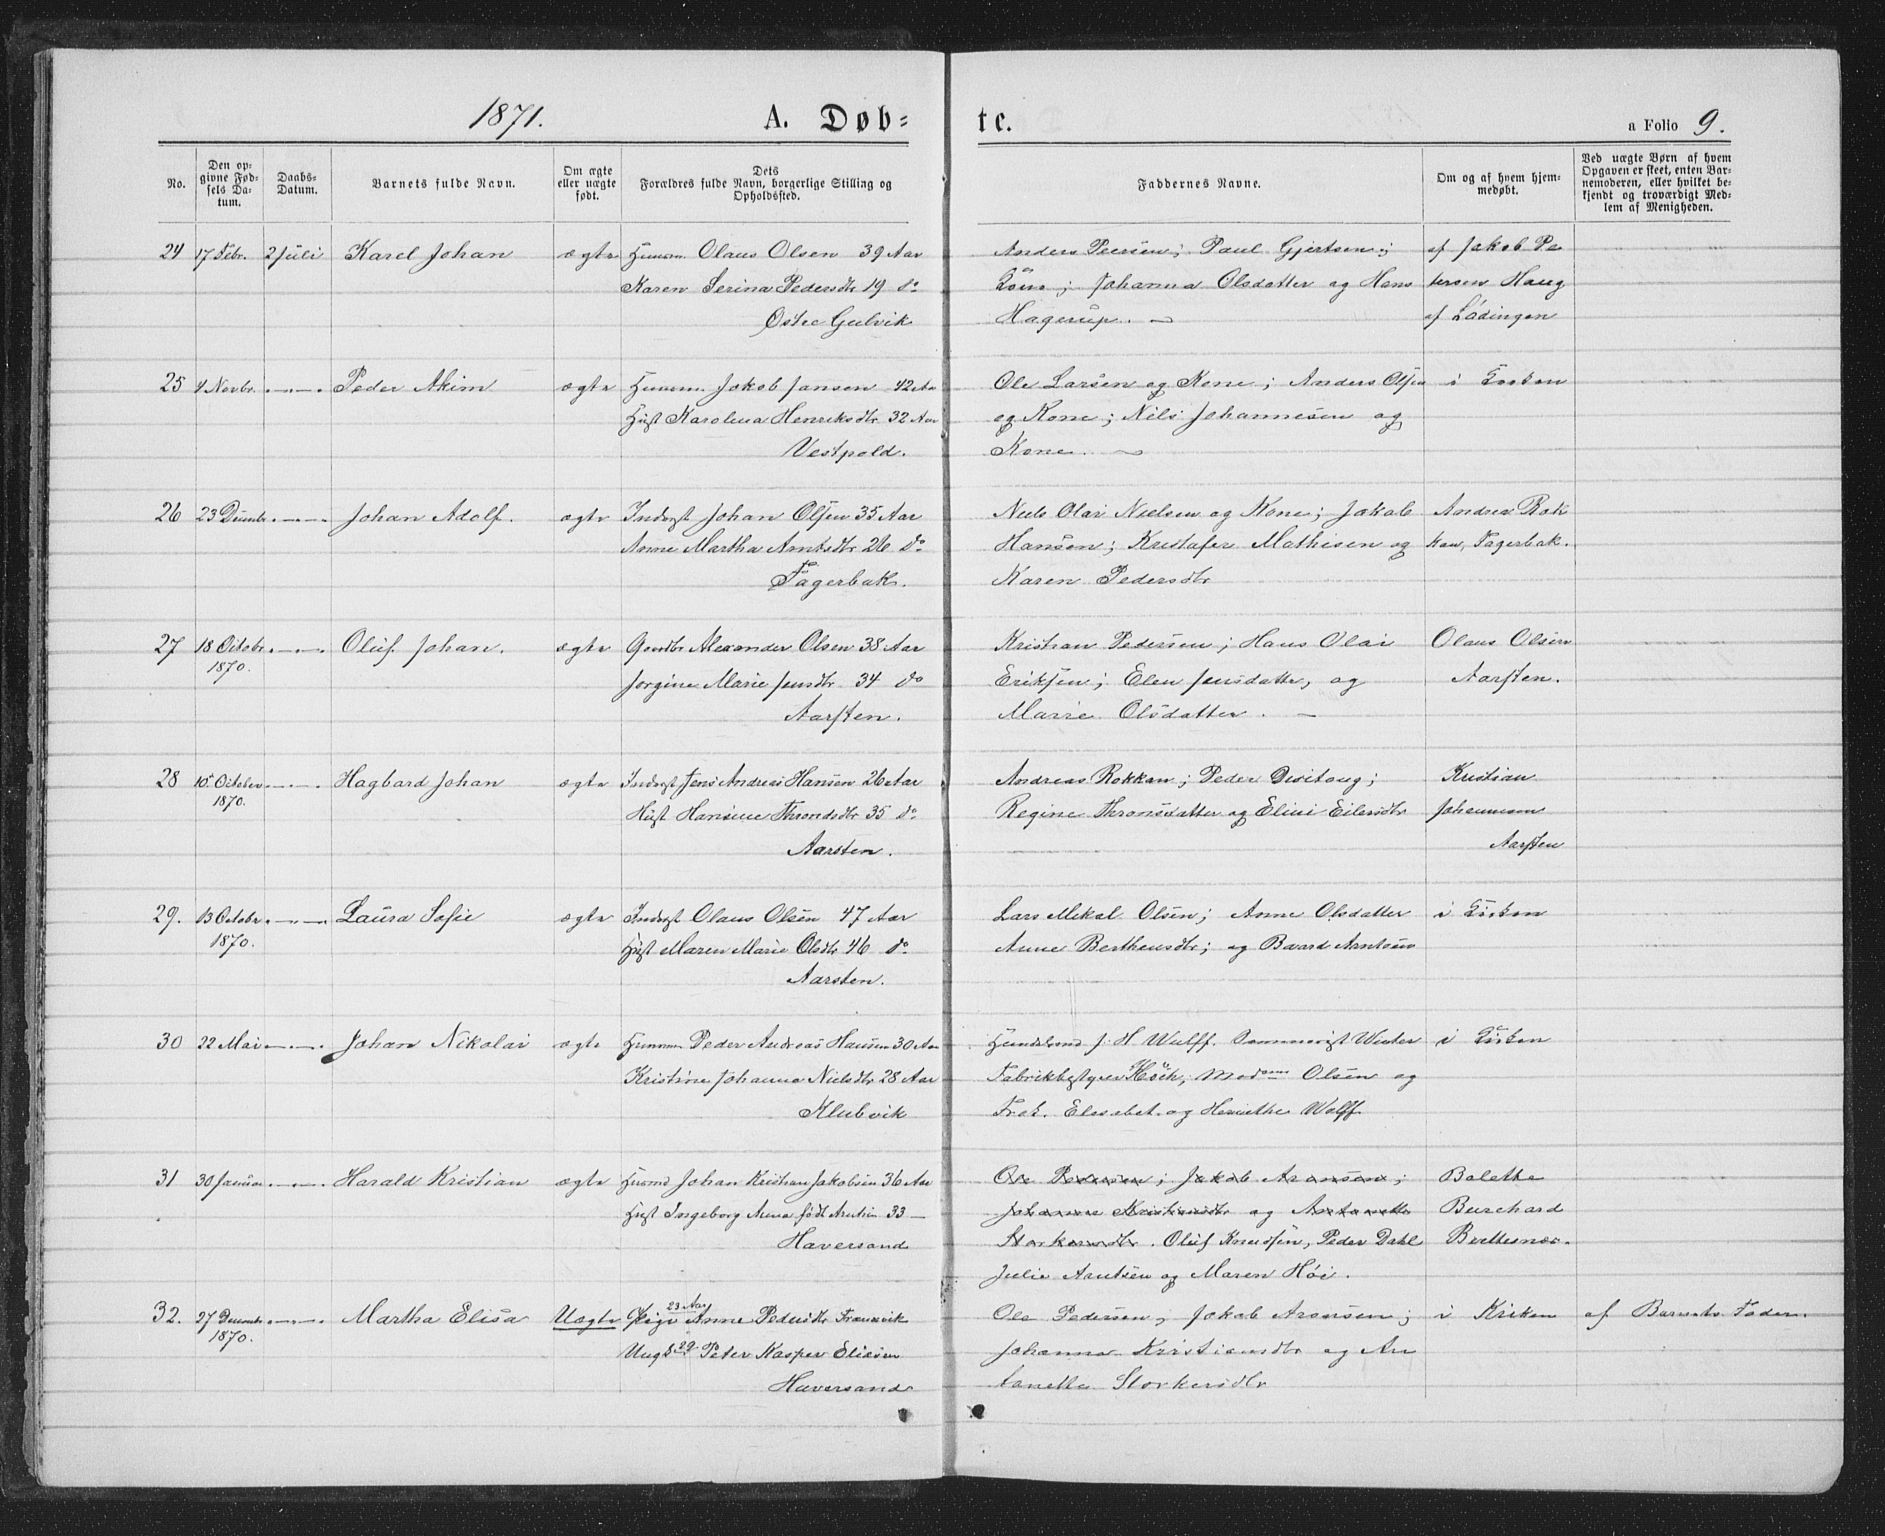 1871. A. Døb= te. a Folio 9.
No.
Den op=
givne Fød=
sels Da=
tum.
Daabs=
Datum.
Barnets fulde Navn.
Om ægte
eller uægte
født.
Dets
Forældres fulde Navn, borgerlige Stilling og
Opholdssted.
Faddernes Navne.
Om og af hvem hjem=
medøbt.
Ved uægte Børn af hvem
Opgaven er skeet, enten Bar=
nemoderen, eller hvilket be=
kjendt og troværdigt Med=
lem af Menigheden.
24 17 Febr. 2 Juli Karel Johan ægte Huusm. Olaus Olsen 39 Aar Anders Peersen; Paul Gjertsen; af Jakob Pe
Karen Serina Pedersdtr 19 do Johanna Olsdatter og Hans tersen Haug
Østre Gulvik Hagerup. — af Lødingen
25 4 Novbr. Peder Akim ægte Huusm. Jakob Jansen 42 Aar Ole Larsen og Kone; Anders Olsen i Kirken
Hust Karolina Henriksdtr 32 Aar og Kone; Nils Johannesen og
Vestpold. Kone. —
26 23 Decmbr. Johan Adolf. ægte Inderst Johan Olsen 35 Aar Niels Olai Nielsen og Kone; Jakob Andrea Rok
Anne Martha Arntsdtr 26 do Hansen; Kristofer Mathisen og kan, Fagerbak.
Fagerbak. Karen Pedersdtr
27 18 Octobr. Oluf Johan. ægte Gaardbr Alexander Olsen 38 Aar Kristian Pedersen; Hans Olai Olaus Olsen
1870. Jorgine Marie Jensdtr 34 do Eriksen; Elen Jensdatter, og Aarsten.
Aarsten. Marie Olsdatter. —
28 10 October Hagbard Johan ægte Inderst Jens Andreas Hansen 26 Aar Andreas Rokkan; Peder Kristian
1870. Hust Hansine Throndsdtr 35 do Regine Thronsdatter og Eline Eilersdtr Johannesen
Aarsten. Aarsten
29. 13 Octobr. Laura Sofie ægte Inderst Olaus Olsen 47 Aar Lars Mikal Olsen; Anne Olsdatter i Kirken
1870. Hust Maren Marie Olsdtr 46 do Anne Berthensdtr; og Baard Arntsen
Aarsten.
30 22 Mai Johan Nikolai ægte Huusmm Peder Andreas Hansen 30 Aar Handelsmd J. H. Wulff. Winter i Kirken
Kristine Johanna Nielsdtr 28 Aar Fabrikbestyrer Madame Olsen og
Klubvik Frøk. Elesabet og Henriethe Wolff
31 30 Januar Harald Kristian ægte Huusmd Johan Kristian Jakobsen 36 Aar Ole Pedersen; Jakob Aronsen; Bolethe
Hust Ingeborg Anna født Arntsen 33 — Johanna Kristiansdtr og Antonette Burchard
Haversand Storkersdtr. Oluf Knudsen, Peder Dahl Brettesnæs.
Julie Arntsen og Maren Høi.
32. 27 Decmbr Martha Elisa Uægte Pige 23 Aar Anne Pedersdtr Framvik Ole Pedersen, Jakob Aronsen; i Kirken af Barnets Fader.
1870. Ungk 29 Peter Kasper Eliæsen Johanna Kristiansdtr og An
Haversand tonette Storkersdtr